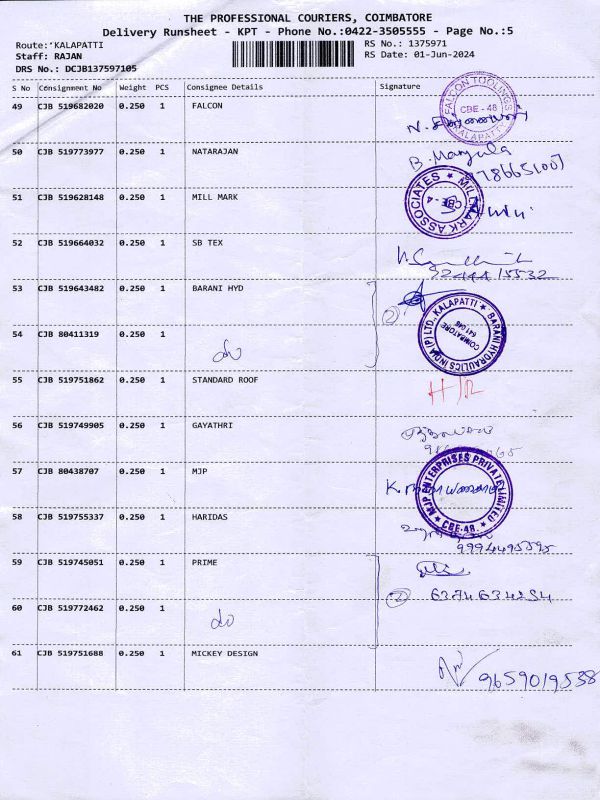 THE PROFESSIONAL COURIERS, COIMBATORE
Delivery Runsheet - KPT - Phone No.:0422-3505555 - Page No.:5
Route: KALAPATTI
RS No.: 1375971
Staff: RAJAN
RS Date: 01-Jun-2024
DRS No.: DCJB137597105
S No Consignment No Weight PCS Consignee Details Signature
49 CJB 519682020 0.250 1 FALCON
FALCON TOOLINGS CBE - 48 KALAPATTI
50 CJB 519773977 0.250 1 NATARAJAN B. Manjula
51 CJB 519628148 0.250 1 MILL MARK
MILL MARK ASSOCIATES CBE - 4
52 CJB 519664032 0.250 1 SB TEX
9244415532
53 CJB 519643482 0.250 1 BARANI HYD
2
BARANI HYDRAULICS INDIA (P) LTD., KALAPATTI COIMBATORE 641 048
54 CJB 80411319 0.250 1 do
55 CJB 519751862 0.250 1 STANDARD ROOF H/R
56 CJB 519749905 0.250 1 GAYATHRI
57 CJB 80438707 0.250 1 MJP
MJP ENTERPRISES PRIVATE LIMITED CBE-48.
58 CJB 519755337 0.250 1 HARIDAS
9994495595
59 CJB 519745051 0.250 1 PRIME
2 6374634254
60 CJB 519772462 0.250 1 do
61 CJB 519751688 0.250 1 MICKEY DESIGN
9659019538